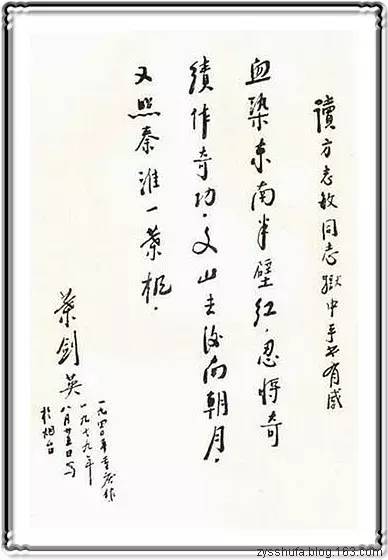 讀方志敏同志獄中手书有感
血染东南半壁紅．忍將奇
績作奇功．文山去後南朝月．
又照秦淮一葉枫．
葉劍英
一九四〇年重慶作
一九七九年
八月廿五日写
於烟台
zysshufa.blog.163.com